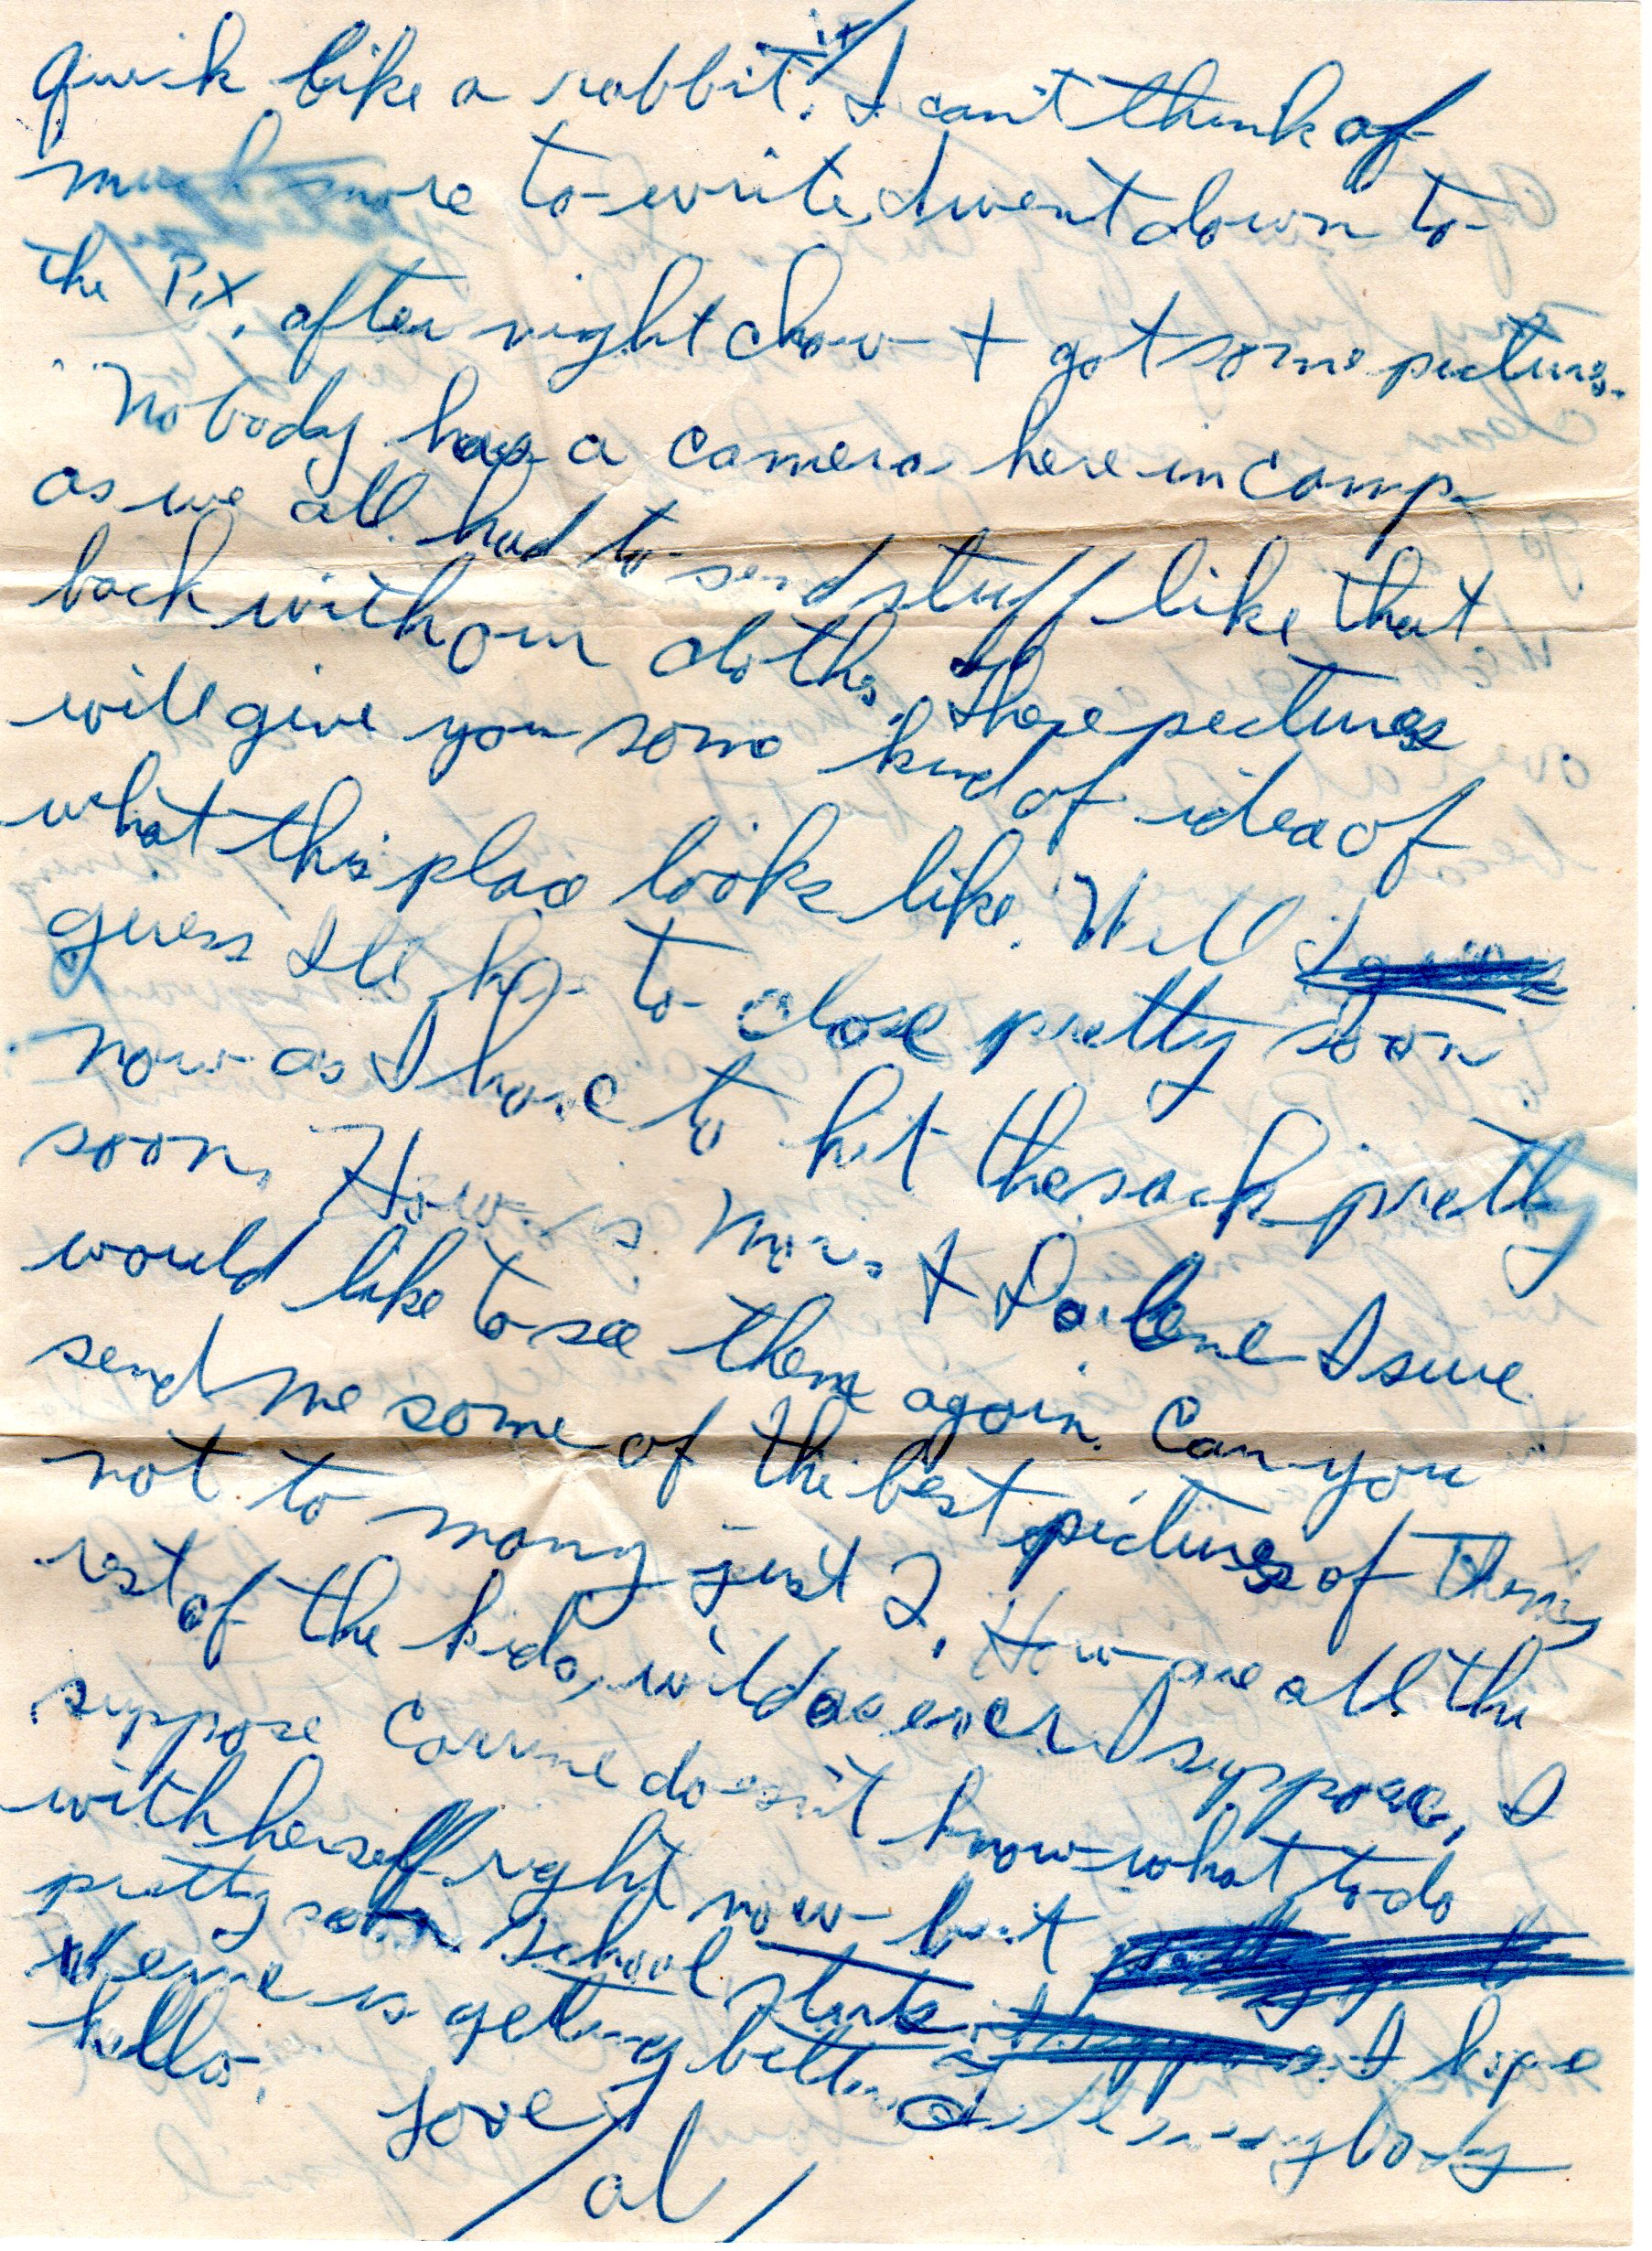 quick like a rabbit. I can't think of
much more to write, I went down to
the P.X. after night chow + got some pictures.
Nobody has a camera here in camp
as we all had to send stuff like that
back with our cloths. These pictures
will give you some kind of idea of
what this place looks like. Well
guess I'll have to close pretty soon
now as I have to hit the sack pretty
soon. How is Mar. + Darlene I sure
would like to see them again. Can you
send me some of the best pictures of them,
not to many just 2. How are all the
rest of the kids, wild as ever I suppose, I
suppose Corrine doesn't know what to do
with herself right now but
pretty soon school starts. I hope
is getting better. Tell everybody
hello.
Love
Al